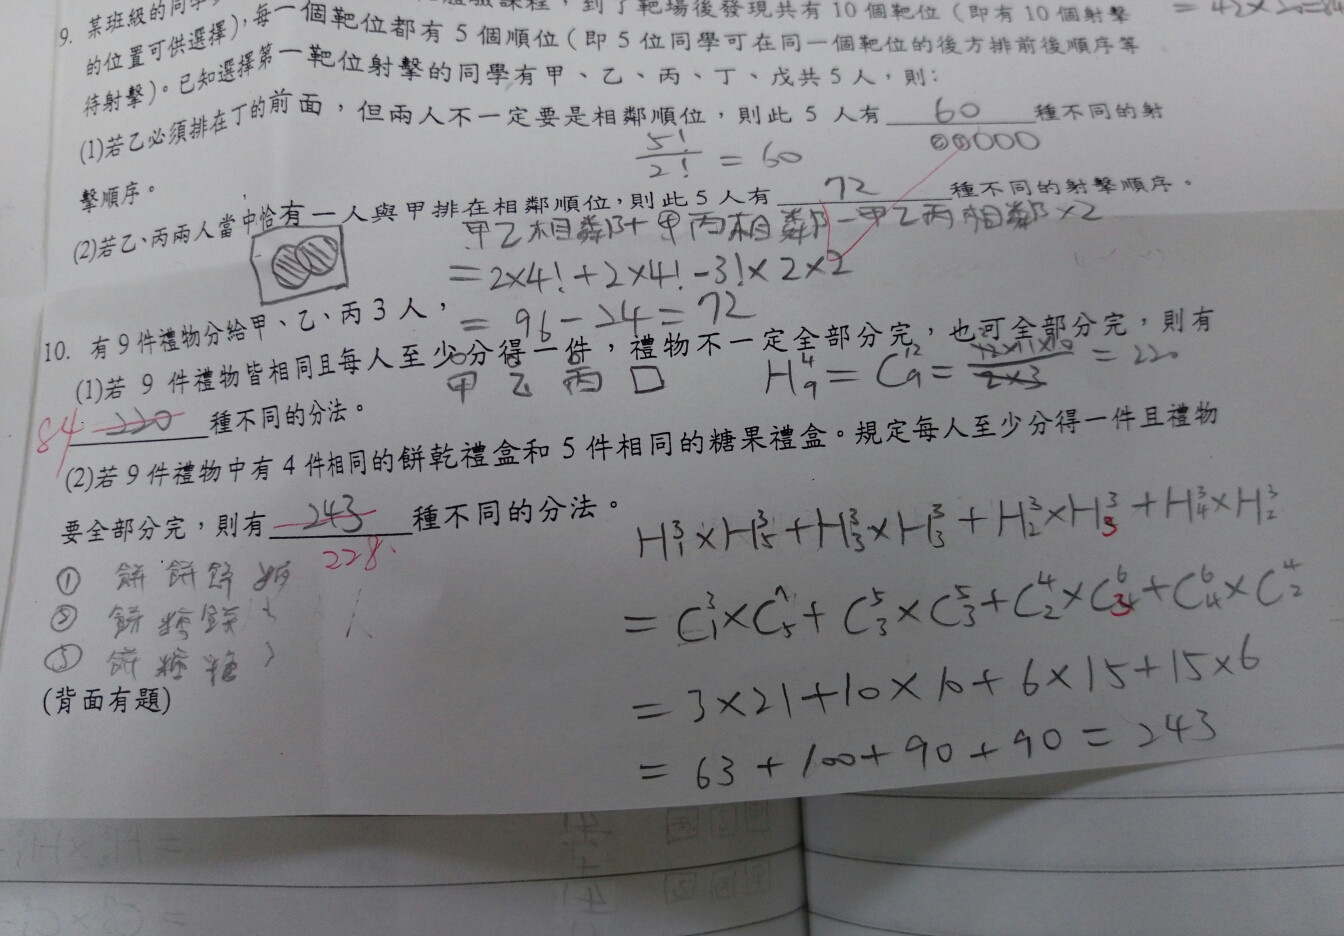 9. 某班級的同學
到了靶場後發現共有10個靶位(即有10個射擊
= 42×20=84
的位置可供選擇),每一個靶位都有5個順位(即5位同學可在同一個靶位的後方排前後順序等
待射擊)。已知選擇第一靶位射擊的同學有甲、乙、丙、丁、戊共5人,則:
(1)若乙必須排在丁的前面,但兩人不一定要是相鄰順位,則此5人有 60 種不同的射
5!/2! = 60
擊順序。
(2)若乙、丙兩人當中恰有一人與甲排在相鄰順位,則此5人有 72 種不同的射擊順序。
甲乙相鄰+甲丙相鄰-甲乙丙相鄰×2
= 2×4!+2×4!-3!×2×2
= 96-24=72
10. 有9件禮物分給甲、乙、丙3人,
(1)若9件禮物皆相同且每人至少分得一件,禮物不一定全部分完,也可全部分完,則有
甲 乙 丙 □ H⁴₉ = C¹²₉ = 12×11×10/2×3 = 220
84 220 種不同的分法。
(2)若9件禮物中有4件相同的餅乾禮盒和5件相同的糖果禮盒。規定每人至少分得一件且禮物
要全部分完,則有 243 種不同的分法。
228
H³₁×H³₅+H³₃×H³₃+H³₂×H³₃+H³₄×H³₂
① 餅餅餅
② 餅糖餅
③ 餅糖糖
= C³₁×C⁷₅+C⁵₃×C⁵₃+C⁴₂×C⁶₃+C⁶₄×C⁴₂
= 3×21+10×10+6×15+15×6
= 63+100+90+90=243
(背面有題)